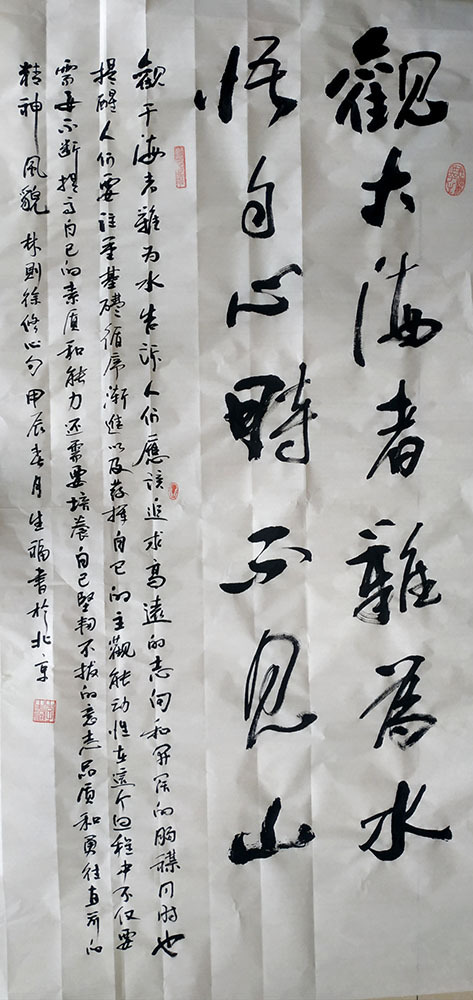 觀大海者難為水
悟自心時不見山
觀于海者難为水告訴人们應該追求高遠的志向和開闊的胸襟同时也
提醒人们要注重基礎循序漸進以及發揮自己的主觀能动性在這个过程中不仅要
需要不断提高自己的素质和能力还需要培養自己堅韧不拔的意志品质和勇往直前的
精神风貌 林則徐修心句 甲辰春月生福書於北京